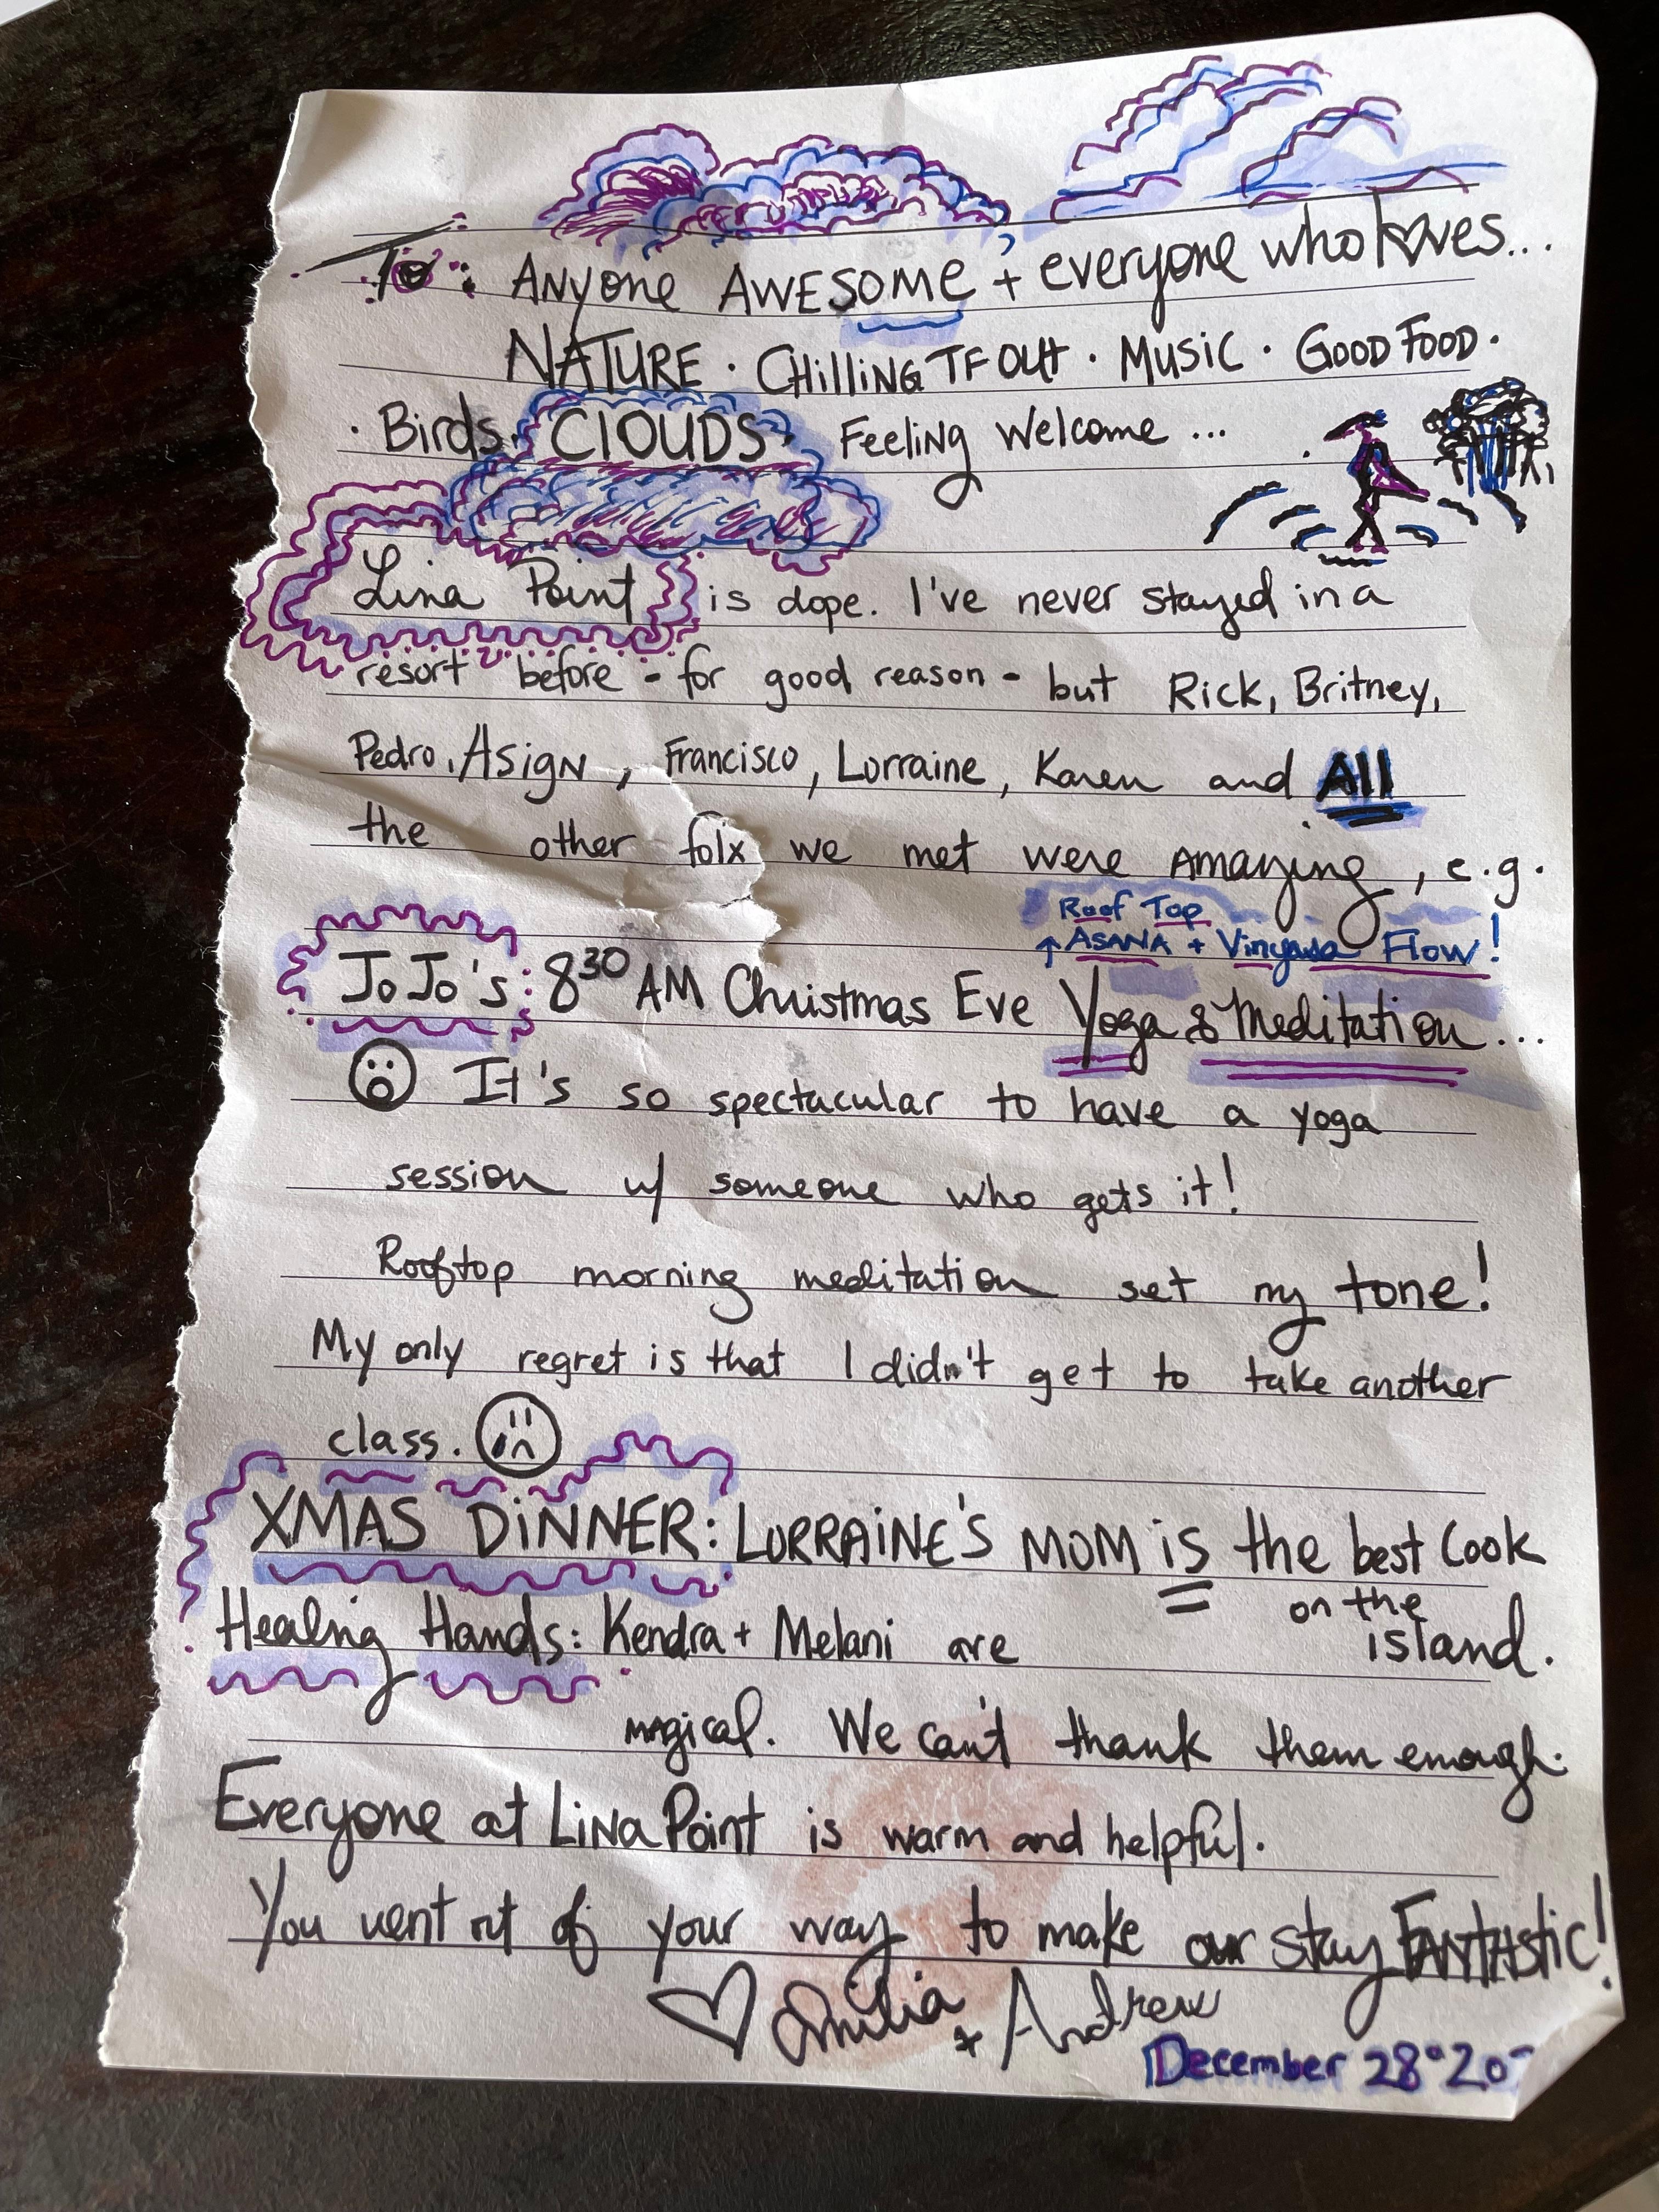 To: Anyone AWESOME + everyone who loves...
NATURE · CHilliNG TF OUt · Music · GOOD FOOD ·
· Birds · ClOUDS · Feeling Welcome ...
Lina Point is dope. I've never stayed in a
resort before - for good reason - but Rick, Britney,
Pedro, Asign, Francisco, Lorraine, Karen and All
the other folx we met were Amazing, e.g.
Roof Top
↑ ASANA + Vinyasa Flow!
JoJo's: 8³⁰ AM Christmas Eve Yoga & Meditation...
It's so spectacular to have a yoga
session w/ someone who gets it!
Rooftop morning meditation set my tone!
My only regret is that I didn't get to take another
class.
XMAS DiNNER: LORRAiNE'S MOM is the best Cook
on the
island.
Healing Hands: Kendra + Melani are
magical. We can't thank them enough.
Everyone at LiNa Point is warm and helpful.
You went out of your way to make our stay FANTAStic!
♡ Emilia + Andrew
December 28° 20